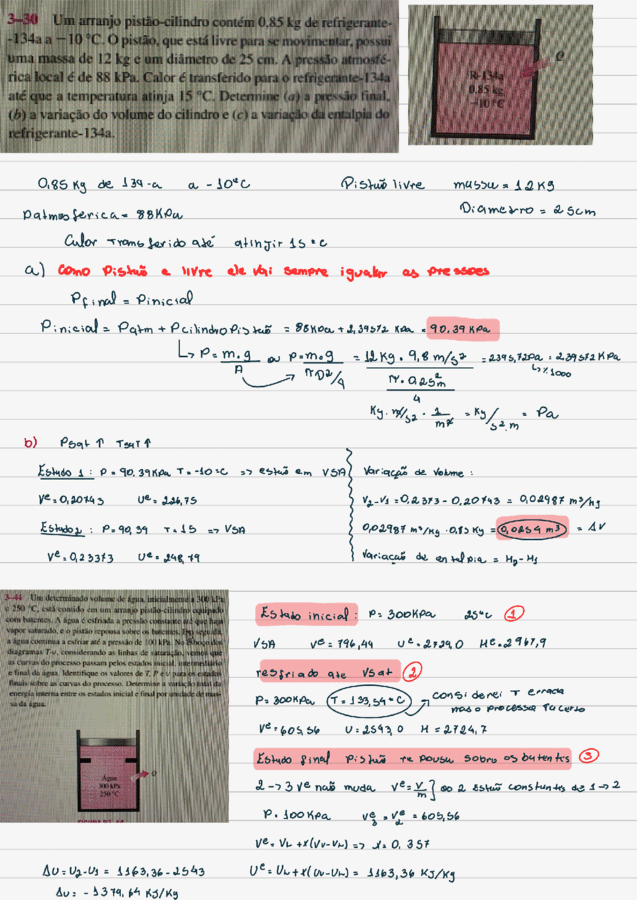 3–30 Um arranjo pistão-cilindro contém 0,85 kg de refrigerante-
-134a a −10 °C. O pistão, que está livre para se movimentar, possui
uma massa de 12 kg e um diâmetro de 25 cm. A pressão atmosfé-
rica local é de 88 kPa. Calor é transferido para o refrigerante-134a
até que a temperatura atinja 15 °C. Determine (a) a pressão final,
(b) a variação do volume do cilindro e (c) a variação da entalpia do
refrigerante-134a.
R-134a
0,85 kg
−10°C
Q
0,85 Kg de 134-a a -10°C
Pistão livre massa = 12Kg
Patmosferica = 88KPa
Diametro = 25cm
Calor Transferido até atinjir 15°C
a) como Pistão e livre ele vai sempre igualar as pressoes
Pfinal = Pinicial
Pinicial = Patm + Pcilindro Pistão = 88KPa + 2,39572 KPa = 90,39 KPa
↳ P = m.g/A ou P = m.g/(π D²/4) = 12 Kg . 9,8 m/s² / (π . 0,25m²/4) = 2395,72Pa = 2,39572 KPa
↳ ÷1000
Kg . m/s² . 1/m² = Kg/s².m = Pa
b) Psat ↑ Tsat ↑
Estado 1 : P = 90,39KPa T = -10°C => estão em VSA
Vᵉ = 0,20743 Uᵉ = 226,75
Estado 2 : P = 90,39 T = 15 => VSA
Vᵉ = 0,23373 Uᵉ = 248,79
Variação de Volume :
V2 - V1 = 0,2373 - 0,20743 = 0,02987 m³/kg
0,02987 m³/Kg . 0,85 Kg = 0,0254 m³ = ΔV
Variação de entalpia = H2 - H1
3–44 Um determinado volume de água, inicialmente a 300 kPa
e 250 °C, está contido em um arranjo pistão-cilindro equipado
com batentes. A água é esfriada a pressão constante até que haja
vapor saturado, e o pistão repousa sobre os batentes. Em seguida,
a água continua a esfriar até a pressão de 100 kPa. No esboço dos
diagramas T-v, considerando as linhas de saturação, vemos que
as curvas do processo passam pelos estados inicial, intermediário
e final da água. Identifique os valores de T, P e v para os estados
finais sobre as curvas do processo. Determine a variação total da
energia interna entre os estados inicial e final por unidade de mas-
sa da água.
Água
300 kPa
250 °C
Q
Estado inicial : P = 300KPa 25°C 1
VSA Vᵉ = 796,44 Uᵉ = 2729,0 Hᵉ = 2967,9
resfriado ate Vsat 2
P = 300KPa T = 133,54°C → considerei T errada
mas o processo Ta certo
Vᵉ = 605,56 U = 2543,0 H = 2724,7
Estado final Pistão repousa sobre os batentes 3
2 -> 3 Vᵉ não muda Vᵉ = V/m ] os 2 estão constantes de 1 -> 2
P = 100KPa Vᵉ3 = Vᵉ2 = 605,56
Vᵉ = VL + x(Vv - VL) => x = 0,357
Uᵉ = UL + x(Uv - UL) = 1163,36 KJ/Kg
ΔU = U2 - U1 = 1163,36 - 2543
ΔU = -1379,64 KJ/Kg